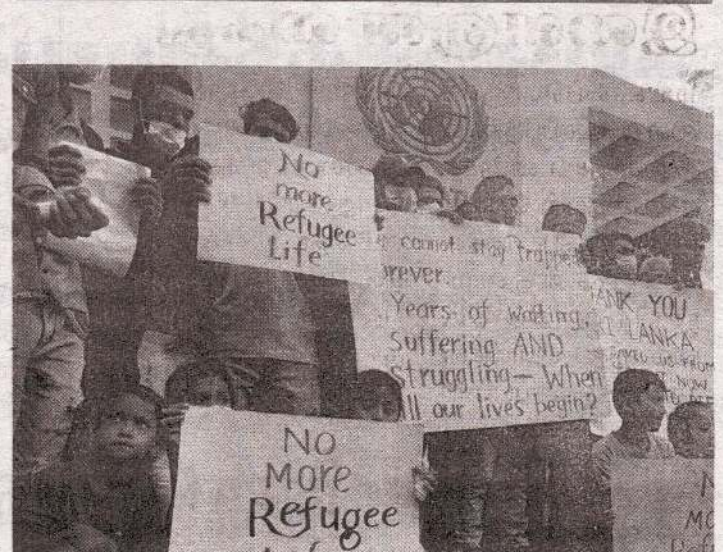 No
more
Refugee
Life
cannot stay trapped
rever.
Years of waiting,
Suffering AND
Struggling — When
ll our lives begin?
ANK YOU
I LANKA
US FROM
NOW
NO
MORE
Refugee